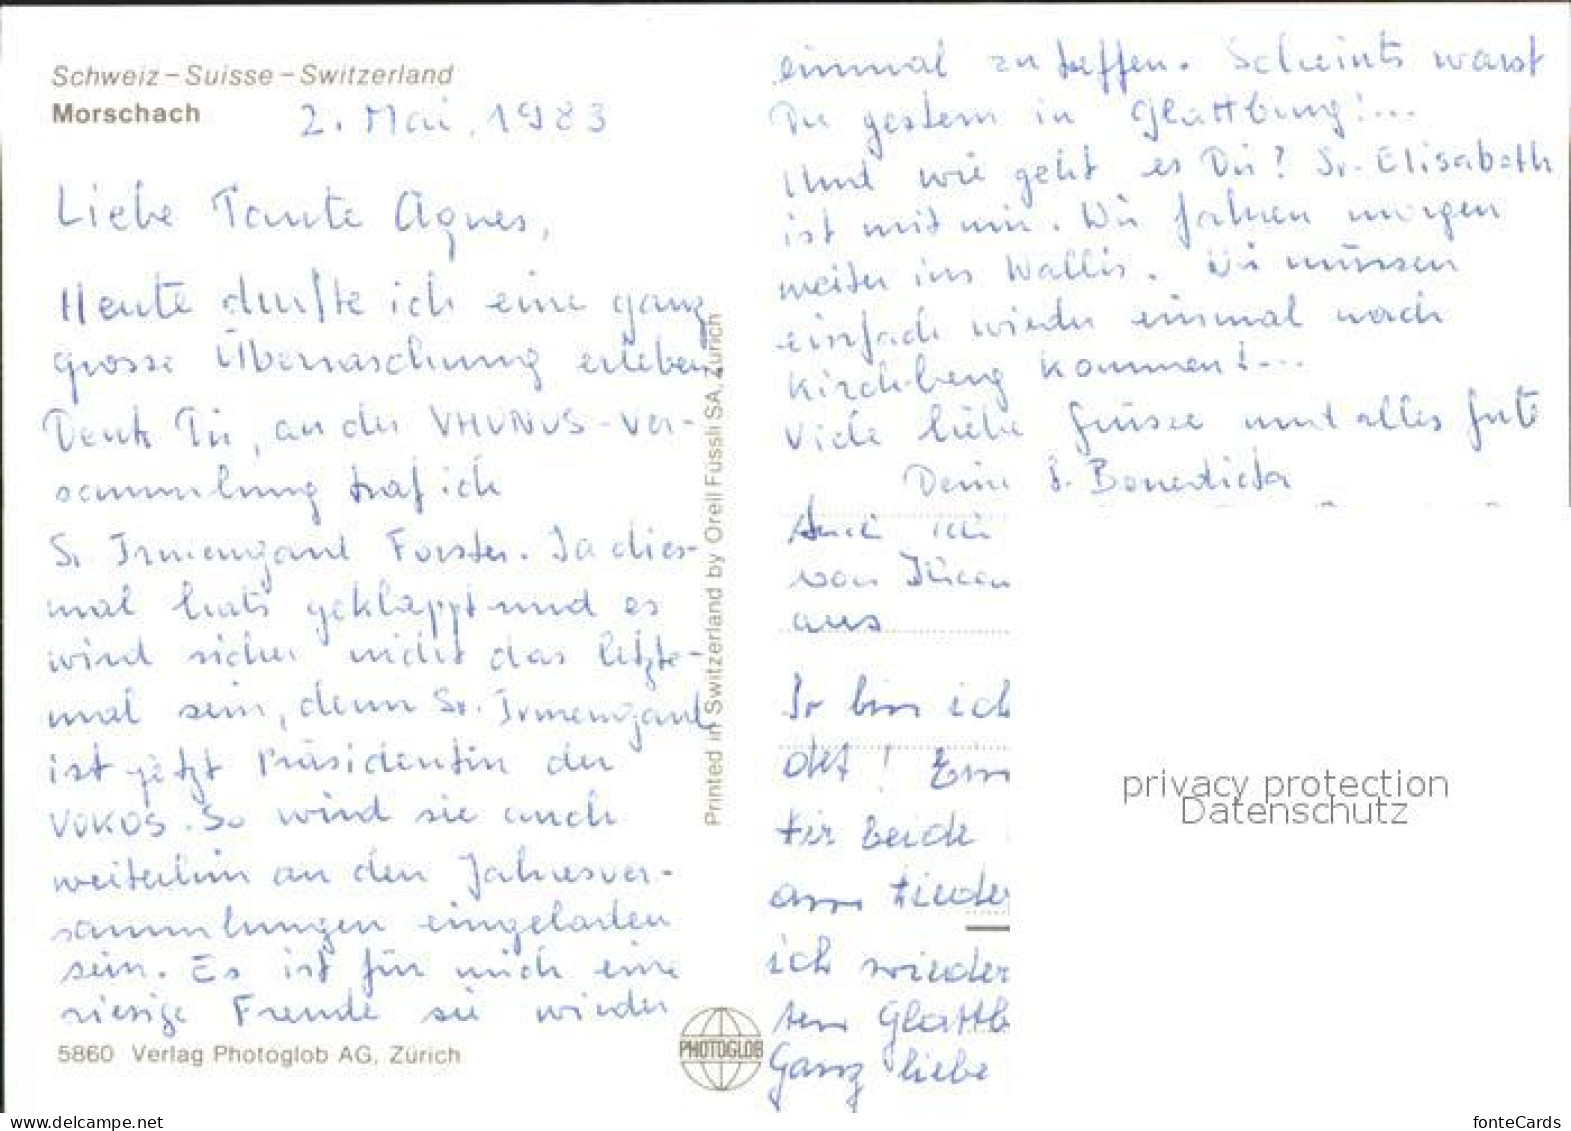 Schweiz – Suisse – Switzerland
Morschach
2. Mai, 1983
Liebe Tante Agnes,
Heute durfte ich eine ganz
grosse Überraschung erleben.
Denk Dir, an der VHONOS-Ver-
sammlung traf ich
Sr. Irmengard Forster. Ja dies-
mal hats geklappt und es
wird sicher nicht das letzte-
mal sein, denn Sr. Irmengard
ist jetzt Präsidentin der
VOKOS. So wird sie auch
weiterhin an den Jahresver-
sammlungen eingeladen
sein. Es ist für mich eine
riesige Freude sie wieder
5860 Verlag Photoglob AG, Zürich
Printed in Switzerland by Orell Füssli SA, Zürich
PHOTOGLOB
einmal zu treffen. Scheints warst
Du gestern in Glattburg!...
Und wie geht es Dir? Sr. Elisabeth
ist mit mir. Wir fahren morgen
weiter ins Wallis. Wir müssen
einfach wieder einmal nach
Kirchberg kommen!...
Viele liebe Grüsse und alles Gute
Deine S. Benedicta
Auch ich
von
aus
So bin ich
det! Ein
ter beide
am
ich wieder
ten Glattb
Ganz liebe
privacy protection
Datenschutz
www.delcampe.net
fonteCards